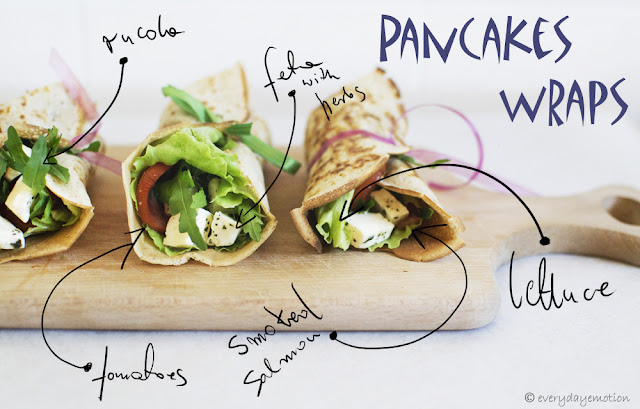 PANCAKES
WRAPS
rucola
feta
with
herbs
lettuce
smoked
salmon
tomatoes
© everydayemotion